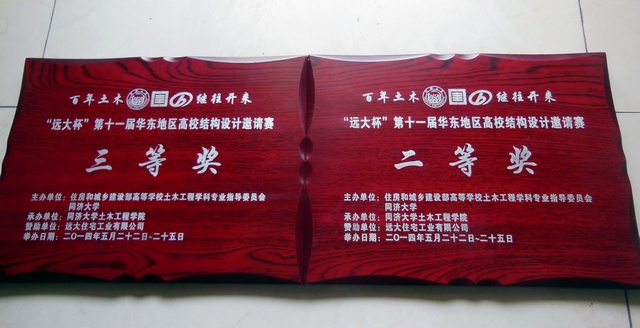 百年土木 继往开来
“远大杯”第十一届华东地区高校结构设计邀请赛
三等奖
主办单位：住房和城乡建设部高等学校土木工程学科专业指导委员会
同济大学
承办单位：同济大学土木工程学院
赞助单位：远大住宅工业有限公司
举办日期：二〇一四年五月二十二日~二十五日
百年土木 继往开来
“远大杯”第十一届华东地区高校结构设计邀请赛
二等奖
主办单位：住房和城乡建设部高等学校土木工程学科专业指导委员会
同济大学
承办单位：同济大学土木工程学院
赞助单位：远大住宅工业有限公司
举办日期：二〇一四年五月二十二日~二十五日